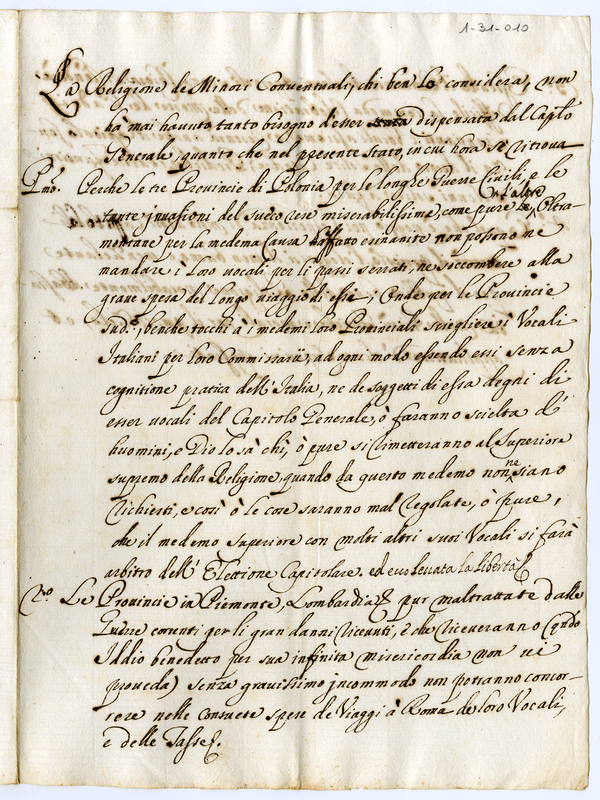 1-31-010
La Religione de Minori Conventuali, chi ben lo considera, non
hà mai havuto tanto bisogno d'esser dispensata dal Caplo
Generale, quanto che nel presente stato, in cui hora se ritrova
Pmo. Perche le tre Provincie di Polonia per le longhe Guerre Civili, e le
tante invasioni del sueco rese miserabilissime, come pure l'altre Oltra-
montane per la medema causa affatto esinanite non possono ne
mandare i loro vocali per li passi serrati, ne soccombere alla
grave spesa del longo viaggio di essi; Onde per le Provincie
sud.e, benche tocchi à i medemi loro Provinciali scieglier i Vocali
Italiani per loro Commissarij, ad ogni modo essendo essi senza
cognitione pratica dell'Italia, ne de soggetti di essa degni di
esser vocali del Capitolo Generale, ò faranno scielta d'
huomini, e Dio lo sà chi, ò pure si rimetteranno al Superiore
supremo della Religione, quando da questo medemo non ne siano
richiesti, e così ò le cose saranno mal regolate, ò pure,
che il medemo superiore con molti altri suoi Vocali si farà
arbitro dell'Elettione Capitolare. ed ecco levata la libertà
2.do Le Provincie in Piemonte, Lombardia & pur maltrattate dalle
Guerre correnti per li gran danni ricevuti, è che riceveranno (qndo
Iddio benedetto per sua infinita misericordia non vi
proveda) senza gravissimo incommodo non potranno concor-
rere nelle consuete spese de Viaggi à Roma de loro Vocali,
e delle Tasse &.